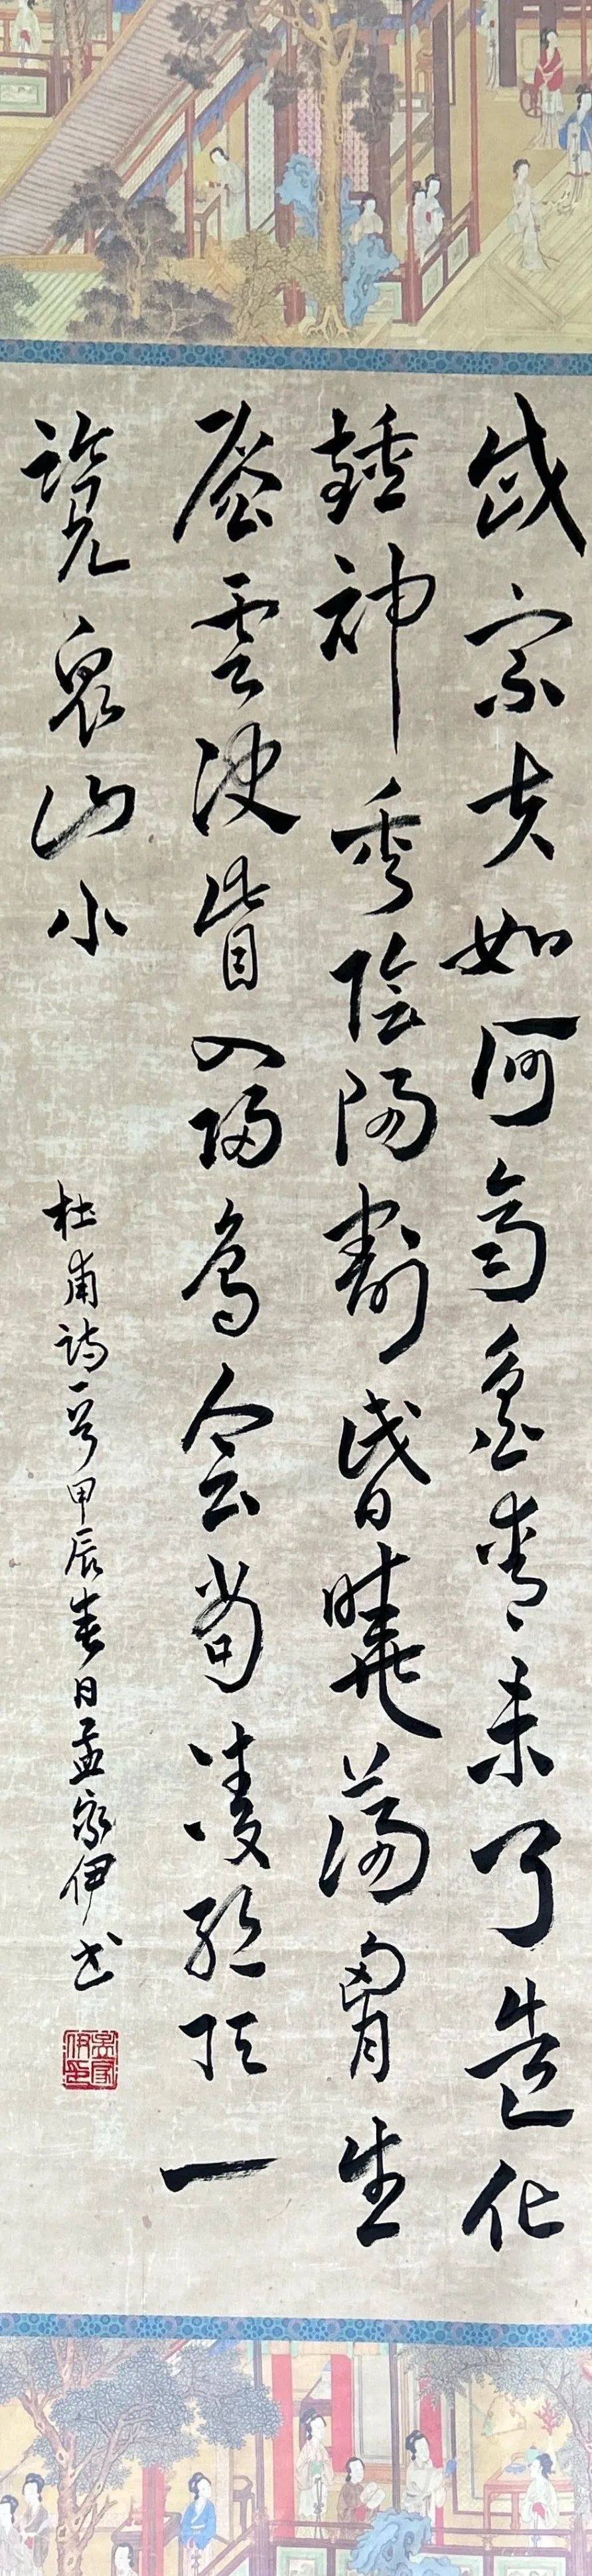 岱宗夫如何齊魯青未了造化
鍾神秀陰陽割昬曉蕩胷生
層雲決眥入歸鳥会當凌絕頂一
覽衆山小
杜甫詩一首甲辰春日孟家伊书
孟家伊印